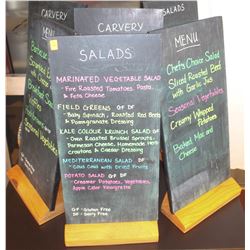 CARVERY
CARVERY
SALADS
MARINATED VEGETABLE SALAD
- Fire Roasted Tomatoes, Pasta, & Feta Cheese
FIELD GREENS GF DF
- Baby Spinach, Roasted Red Beets & Pomegranate Dressing
KALE COLOUR KRUNCH SALAD DF
- Oven Roasted Brussel Sprouts, Parmesan Cheese, Homemade Herb Croutons & Caesar Dressing
MEDITERRANEAN SALAD DF
- Cous Cous with Dried Fruits
POTATO SALAD GF DF
- Creamer Potatoes, Vegetables, Apple Cider Vinaigrette
GF - Gluten Free
DF - Dairy Free
MENU
Chefs Choice Salad
Sliced Roasted Beef
with Garlic Jus
Seasonal Vegetables
Creamy Whipped
Potatoes
Baked Mac and
Cheese